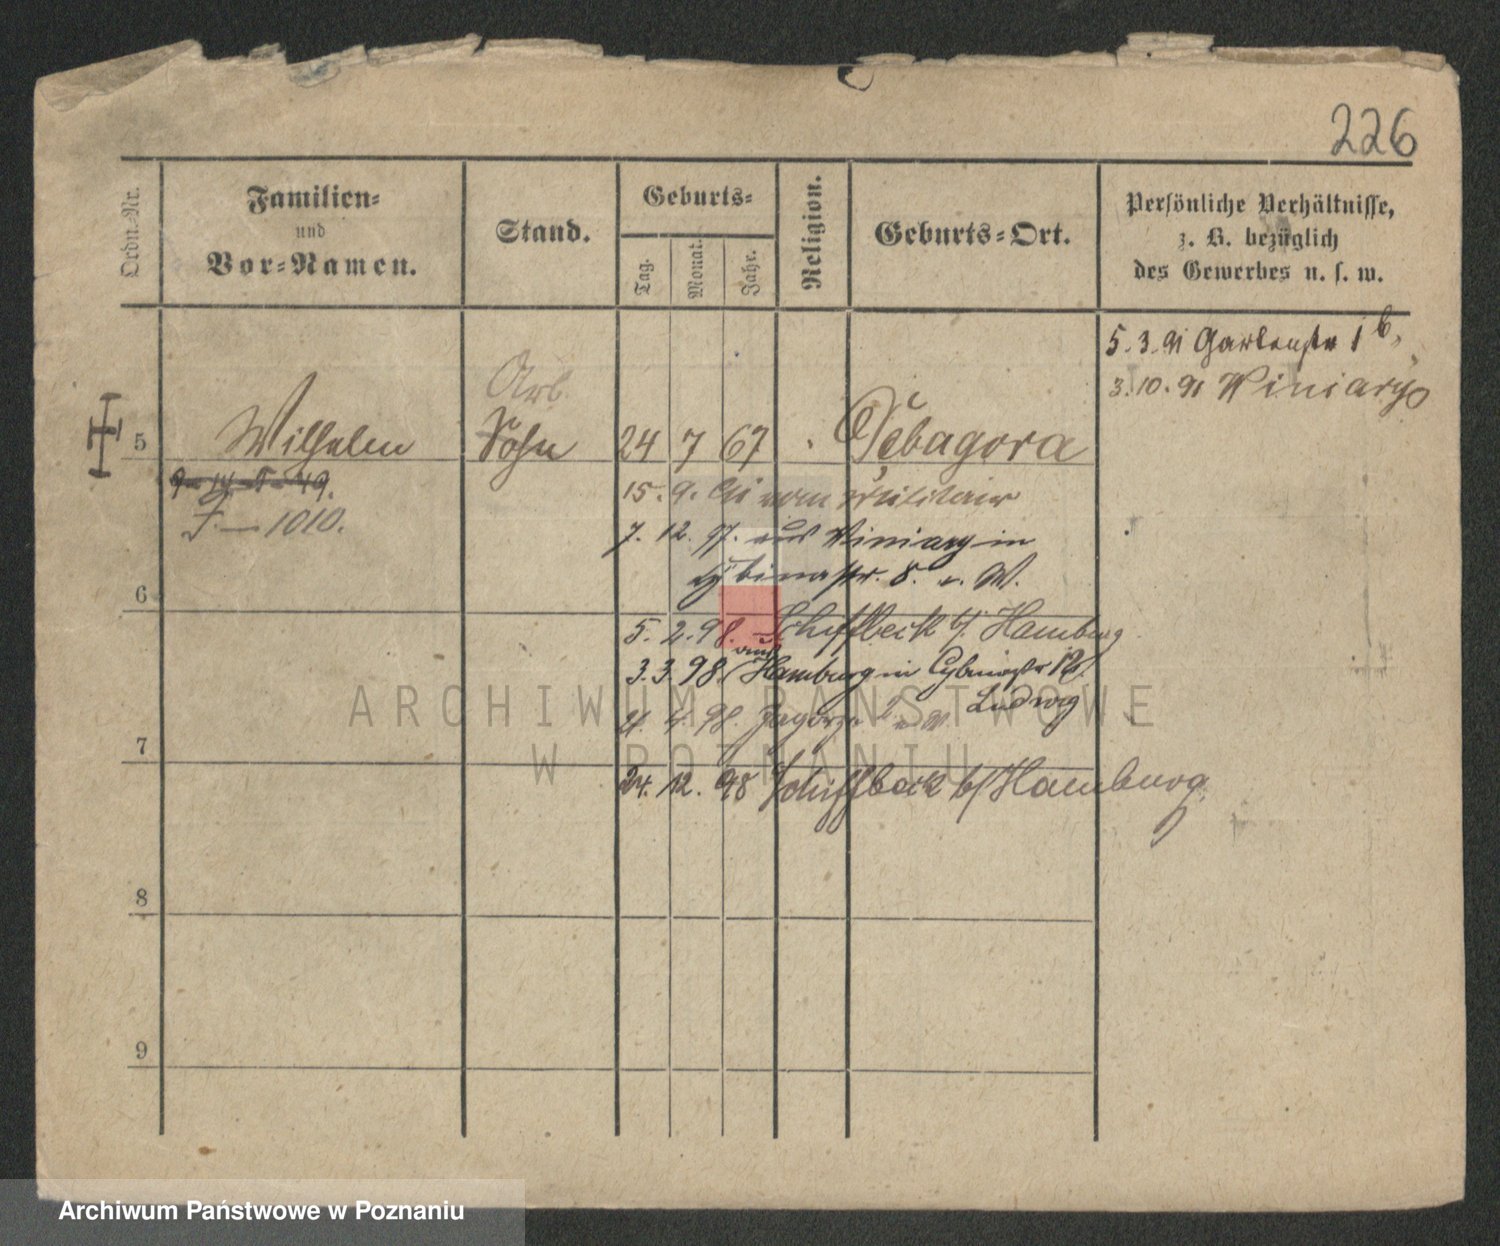 226
Ordn.-Nr.
Familien-
und
Vor-Namen.
Stand.
Geburts-
Tag.
Monat.
Jahr.
Religion.
Geburts-Ort.
Persönliche Verhältnisse,
z. B. bezüglich
des Gewerbes u. s. w.
5. 3. 91 Gartenstr 1b,
3. 10. 91 Winiary
Arb.
5 Wilhelm Sohn 24 7 67 Gebagora
15. 9. 91 vom Militair
F. — 1010.
7. 12. 97. aus Winiary in
8. W.
6
5. 2. 98. Schiffbeck b/ Hamburg
3. 3. 98. aus Hamburg in Cybinastr 12/
Ludwig
4. 98. Zagorze 2
7
24. 12. 98 Schiffbeck b/ Hamburg.
8
9
ARCHIWUM PAŃSTWOWE
W POZNANIU
Archiwum Państwowe w Poznaniu